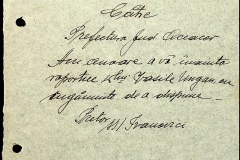 Către
Prefectura Jud. Ciocacov
Am onoare a vă înainta
raportul Dlui Vasile Ungan cu
rugăminte de a dispune.
Pretor